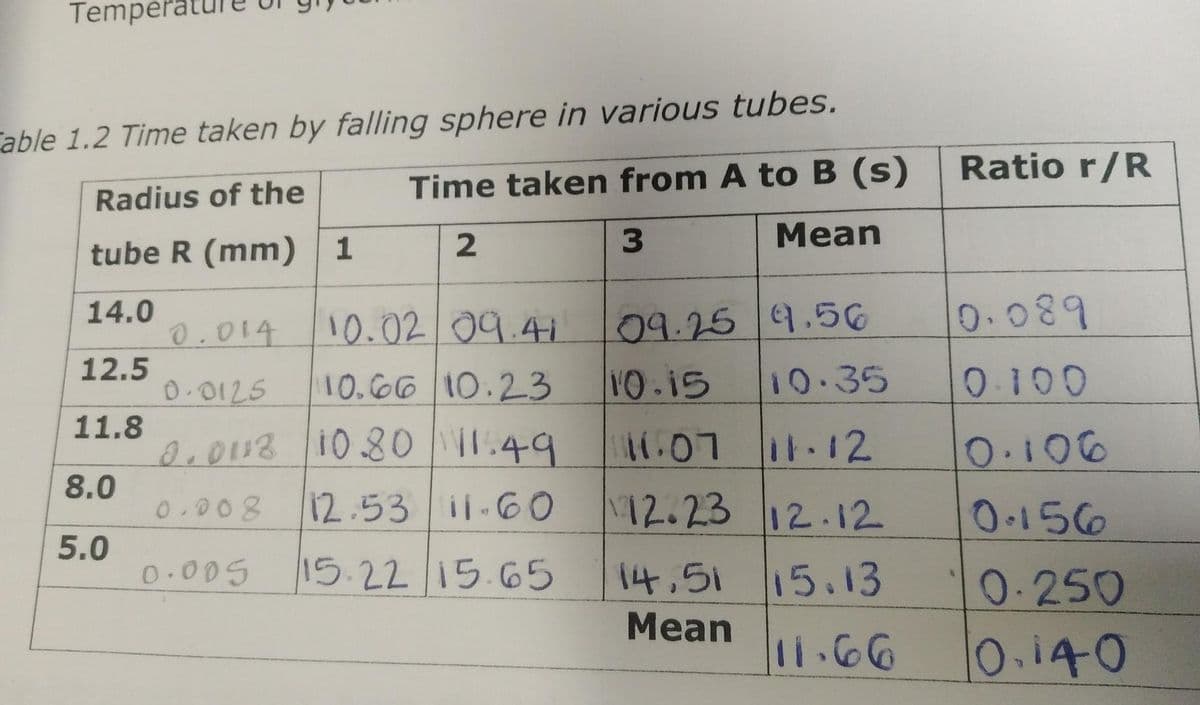 Temperature of
able 1.2 Time taken by falling sphere in various tubes.
Radius of the tube R (mm) Time taken from A to B (s) Ratio r/R
1 2 3 Mean
14.0 0.014 10.02 09.41 09.25 9.56 0.089
12.5 0.0125 10.66 10.23 10.15 10.35 0.100
11.8 0.0118 10.80 11.49 11.07 11.12 0.106
8.0 0.008 12.53 11.60 12.23 12.12 0.156
5.0 0.005 15.22 15.65 14.51 15.13 0.250
Mean 11.66 0.140